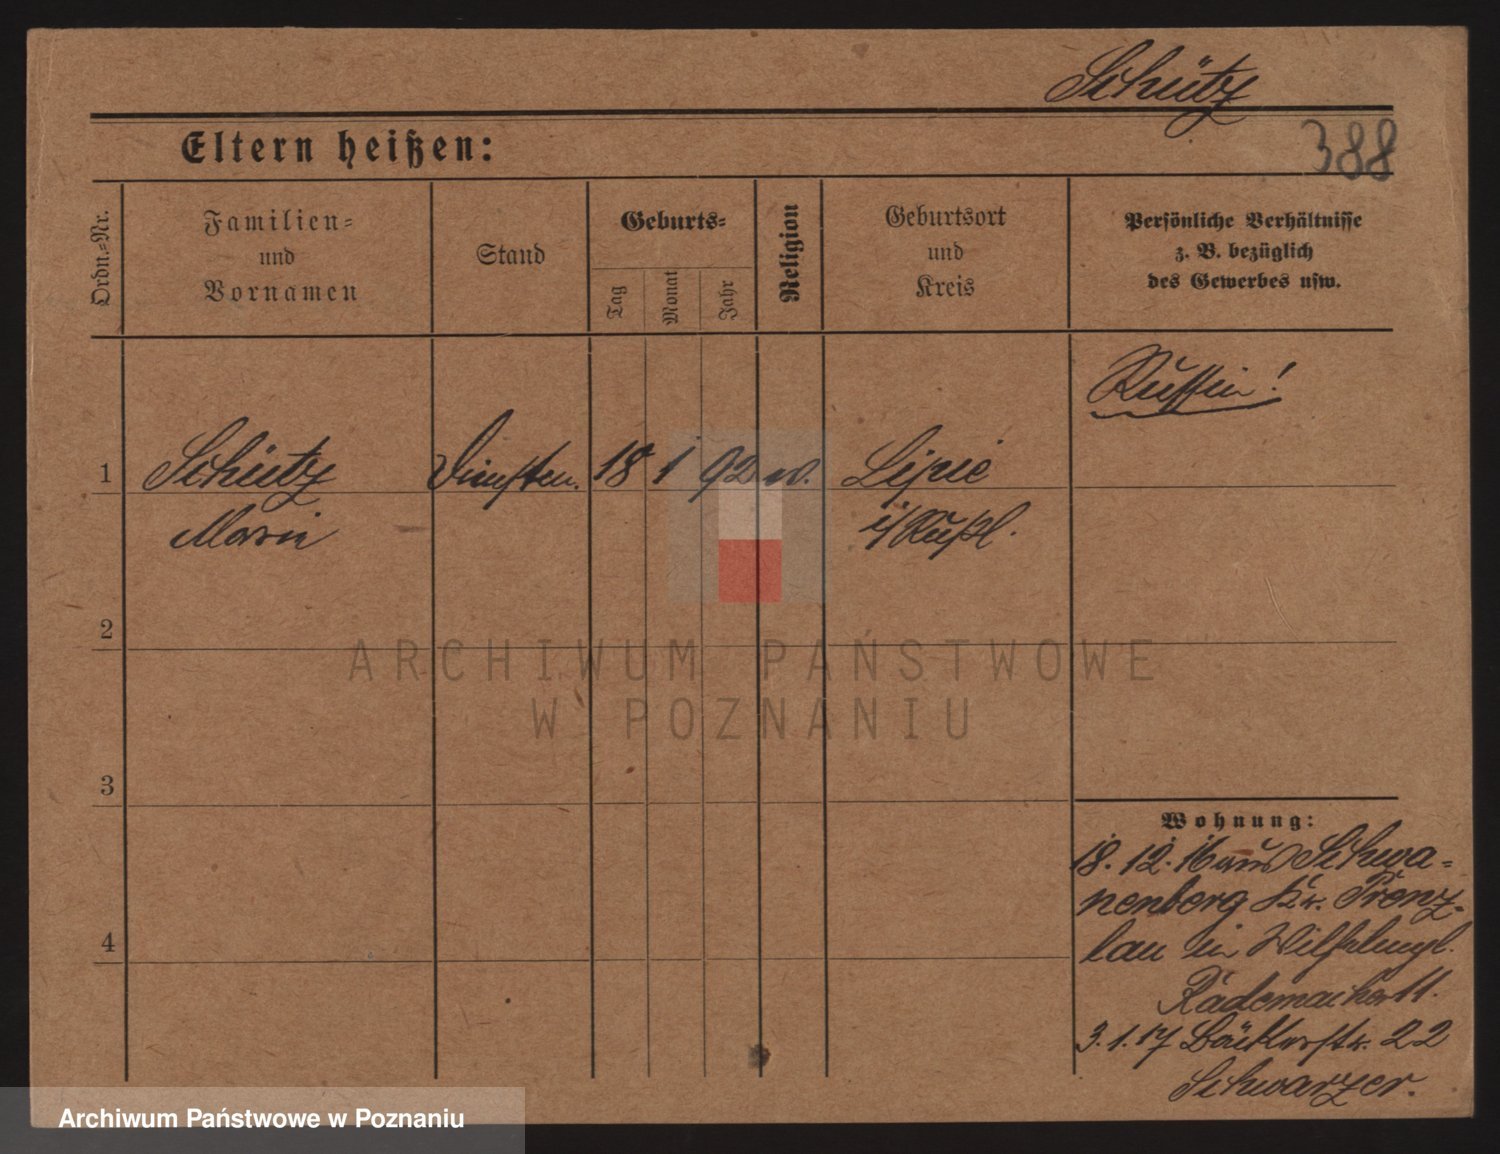 Schütz
388
Eltern heißen:
Ordn.-Nr.
Familien-
und
Vornamen
Stand
Geburts-
Tag
Monat
Jahr
Religion
Geburtsort
und
Kreis
Persönliche Verhältnisse
z. B. bezüglich
des Gewerbes usw.
Russin!
1 Schütz 18 1 92 Lipie
Marie i/Rußl.
2
3
4
ARCHIWUM PAŃSTWOWE
W POZNANIU
Wohnung:
18.12.16 aus Schwa-
nenberg Kr. Prenz-
lau in
Rademacher 11.
3.1.17 Bäckerstr. 22
Schwarzer.
Archiwum Państwowe w Poznaniu